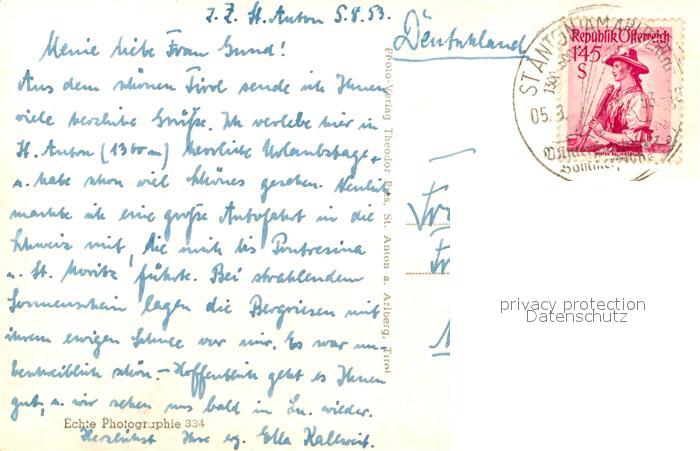 z. Z. St. Anton 5.8.53.
Meine liebe Frau Gund!
Aus dem schönen Tirol sende ich Ihnen
viele herzliche Grüße. Ich verlebe hier in
St. Anton (1300m) herrliche Urlaubstage,
u. habe schon viel Schönes gesehen. Neulich
machte ich eine große Autofahrt in die
Schweiz mit, die mich bis Pontresina
u. St. Moritz führte. Bei strahlendem
Sonnenschein lagen die Bergriesen mit
ihrem ewigen Schnee vor mir. Es war un-
beschreiblich schön. – Hoffentlich geht es Ihnen
gut, u. wir sehen uns bald in Lu. wieder.
Herzlichst Ihre Ella Kallweit.
Echte Photographie 334
Photo-Verlag Theodor Pies, St. Anton a. Arlberg, Tirol
Deutschland
Republik Österreich
1.45
S
ST. ANTON AM ARLBERG
05.8.
privacy protection
Datenschutz